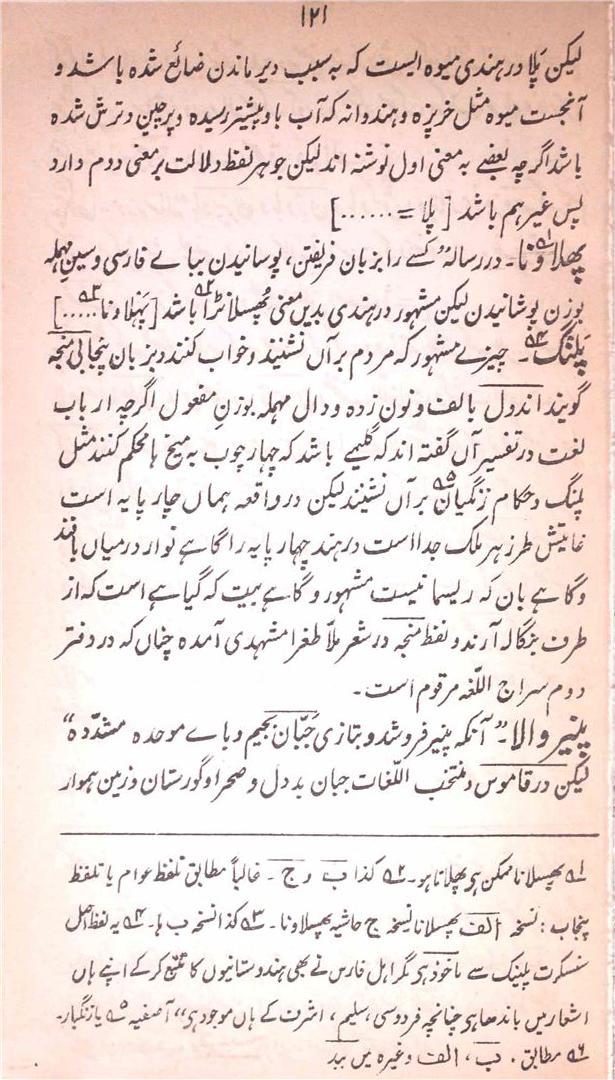 ۱۲۱
لیکن پَلا در ہندی میوہ ایست کہ بہ سبب دیر ماندن ضائع شدہ باشد و
آنجست میوہ مثل خربزہ و ہندوانہ کہ آب باو بیشتر رسیدہ و پرچین و ترش شدہ
باشد اگرچہ بعضے بہ معنی اول نوشتہ اند لیکن جوہر لفظ دلالت بر معنی دوم دارد
پس غیر ہم باشد [ پلا = ......]
پھلاونا۔ در رسالہ "کسے را بزبان فریفتن، پوسانیدن ببا ے فارسی و سین مہملہ
بوزن پوشانیدن لیکن مشہور در ہندی بدیں معنی پُھسلانڑا باشد [پَہلاونا .....]
پلنگ۔ چیزے مشہور کہ مردم برآں نشینند و خواب کنند و بزبان پنجابی منجہ
گویند اندول بالف و نون زدہ و دال مہملہ بوزنِ مفعول اگرچہ ارباب
لغت در تفسیر آں گفتہ اند کہ گلیمے باشد کہ چہار چوب بہ میخ ہا محکم کنند مثل
پلنگ و حکام زنگیاں برآں نشینند لیکن در واقعہ ہماں چار پایہ است
غایتش طرز ہر ملک جدا است در ہند چہار پایہ را گاہے نوار درمیاں بافند
و گاہے بان کہ ریسمانیست مشہور و گاہے بیت کہ گیاہے است کہ از
طرف بنگالہ آرند و لفظ منجہ در شعر ملّا طغرا مشہدی آمدہ چناں کہ در دفتر
دوم سراج اللغہ مرقوم است۔
پنیر والا۔" آنکہ پنیر فروشد و بتازی جَبَّان بجیم و باے موحدہ مشدّدہ"
لیکن در قاموس و منتخب اللغات جبان بد دل و صحرا و گورستان و زمین ہموار
۱؎ پھسلانا ممکن ہی پھلاتا ہو۔ ۲؎ کذا ب و ج۔ غالباً مطابق تلفظ عوام یا تلفظ
پنجاب : نسخہ الف پھسلانا نسخہ ج حاشیہ پھسلاونا۔ ۳؎ کذا نسخہ ب ہا۔ ۴؎ یہ لفظ اصل
سنسکرت پلینک سے ماخوذ ہی مگر اہل فارس نے بھی ہندوستانیوں کا تتبع کرکے اپنے ہاں
اشعار میں باندھا ہی چنانچہ فردوسی، سلیم، اشرف کے ہاں موجود ہی" آصفیہ ۵؎ یا زنگبار۔
۶؎ مطابق، ب، الف وغیرہ میں